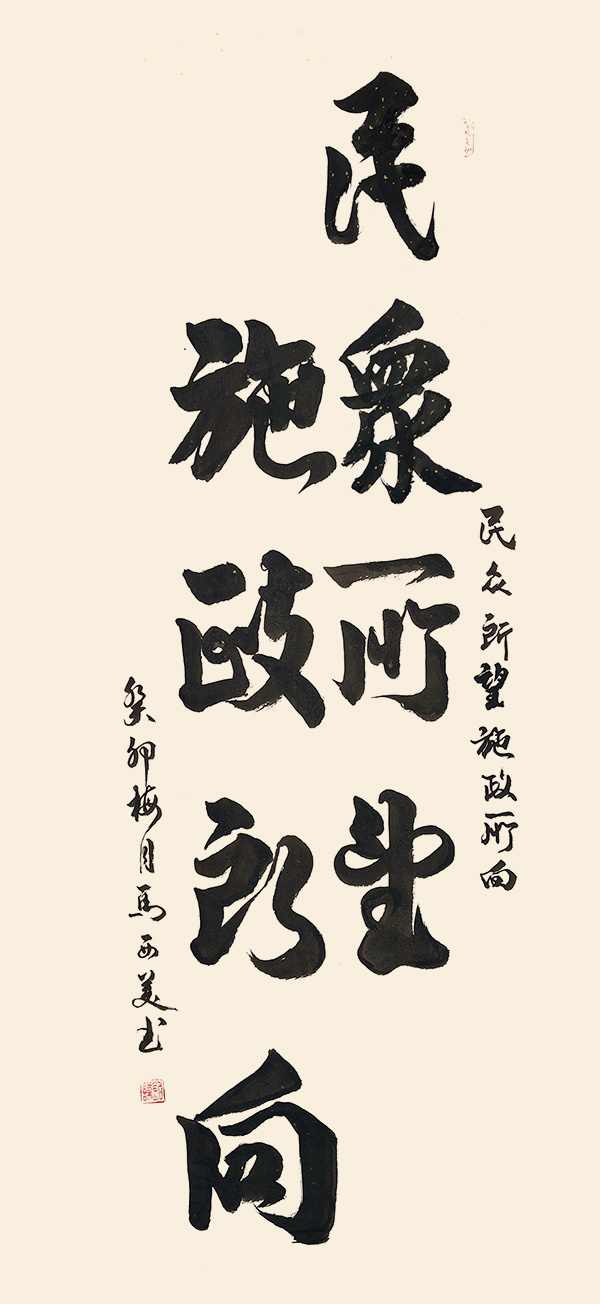 民眾所望
施政所向
民众所望施政所向
癸卯梅月馬西美书